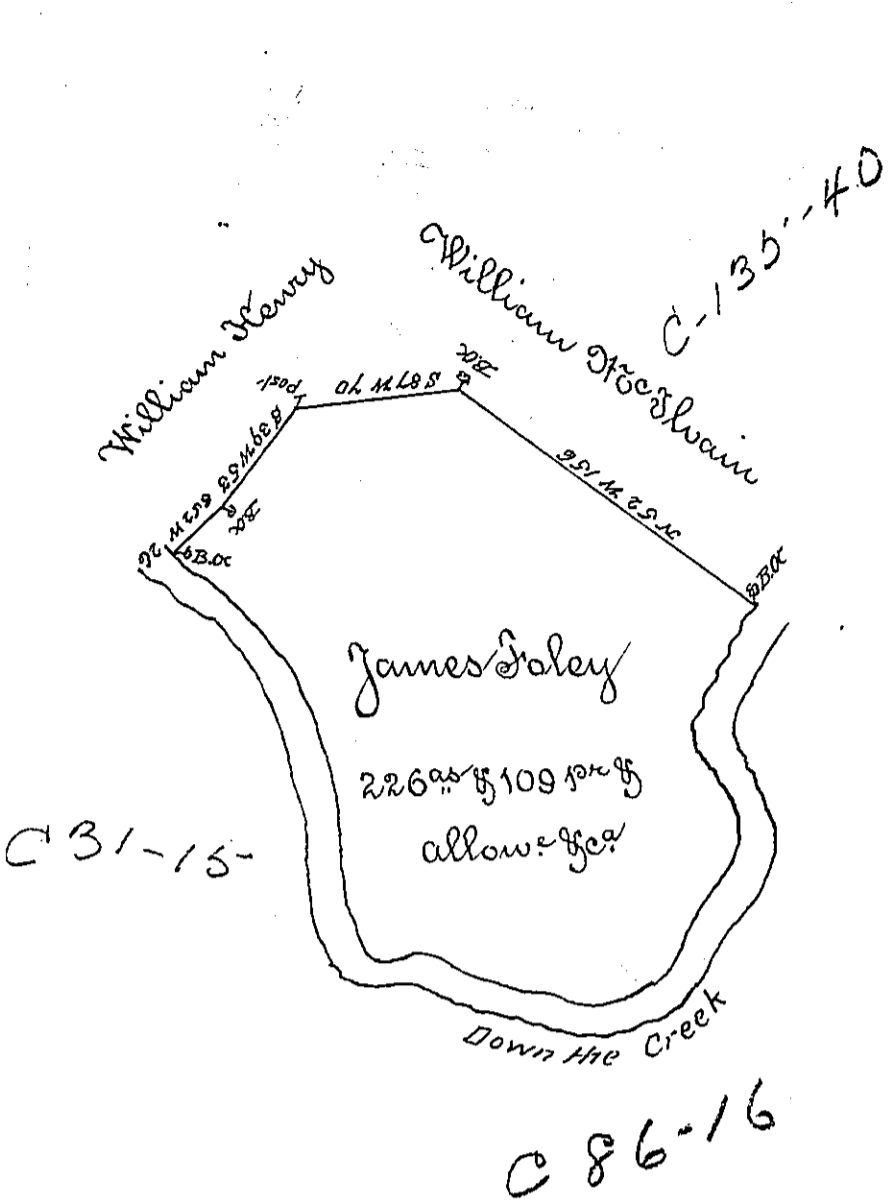 C-135-40
William Henry
William McIlvain
Post
S 87 W 70
B.O
S 39 W 53
N 52 W 156
B.O
S 52 W 26
B.O
B.O
James Foley
226 as & 109 pr &
allowe. &ca.
C 31-15-
Down the Creek
C 86-16